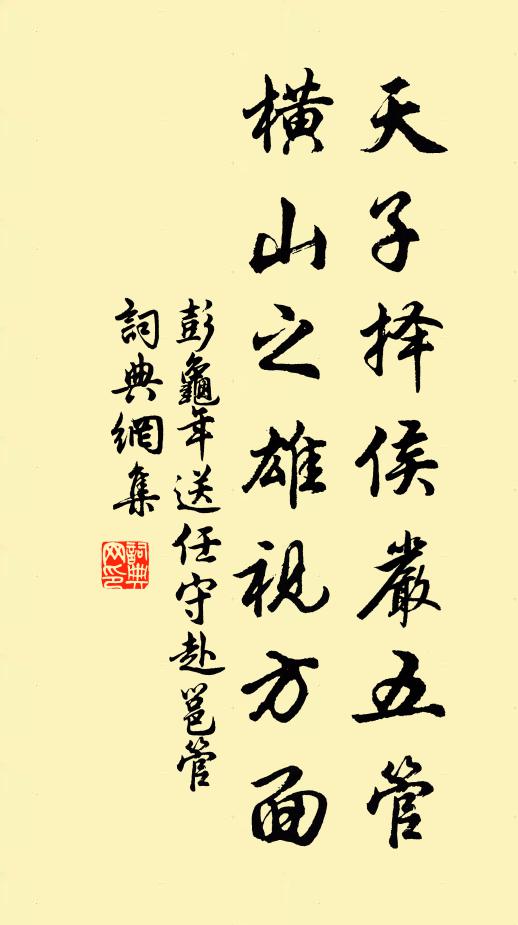 天子择侯嚴五管
橫山之雄視方面
彭龜年送任守赴邕管
詞典網集
詞典网印